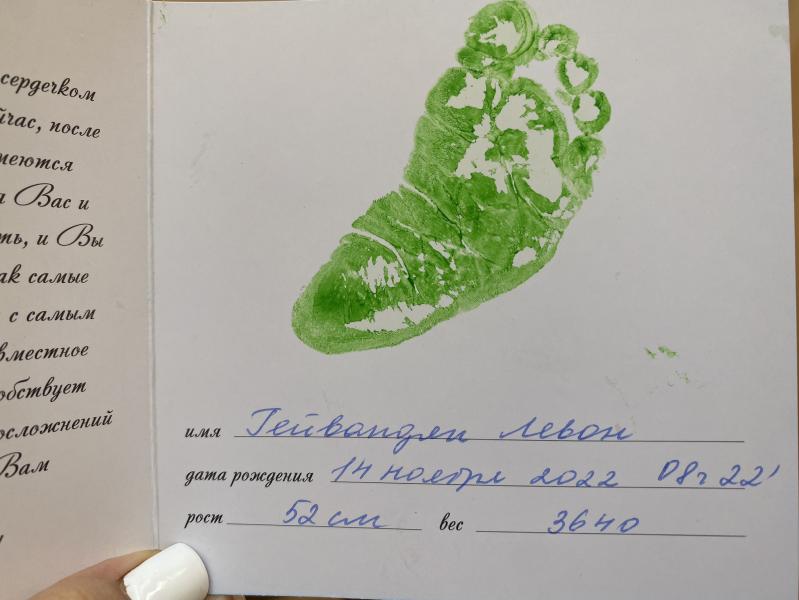 сердечком
йчас, после
меются
а Вас и
ть, и Вы
ак самые
с самым
вместное
обствует
осложнений
Вам
имя Гейвандян Левон
дата рождения 14 ноября 2022 08ч 22'
рост 52 см вес 3640